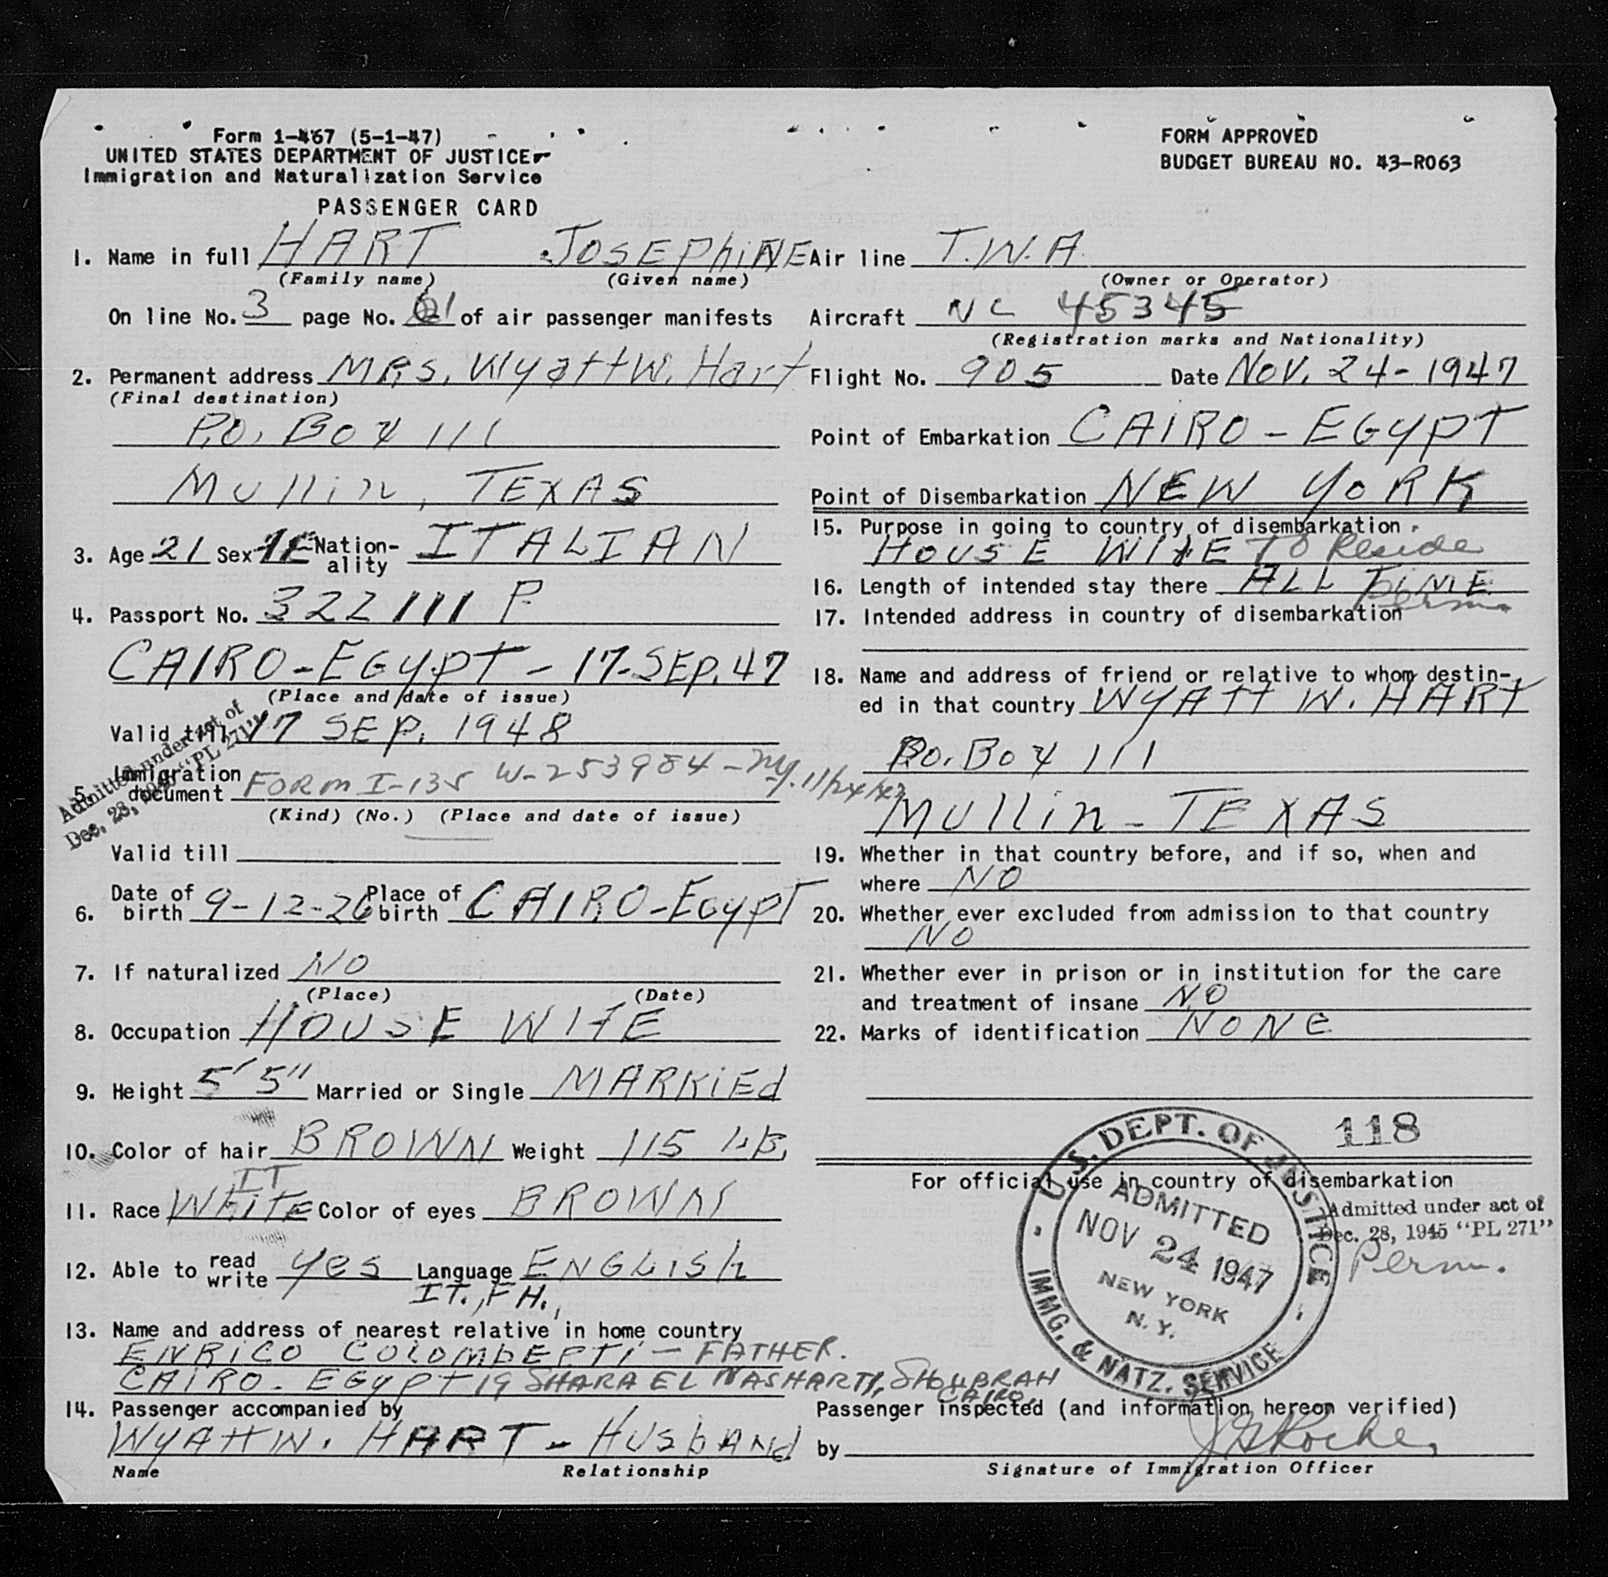 Form 1-467 (5-1-47)
UNITED STATES DEPARTMENT OF JUSTICE
Immigration and Naturalization Service
PASSENGER CARD
FORM APPROVED
BUDGET BUREAU NO. 43-R063
1. Name in full HART JOSEPhiNE
(Family name) (Given name)
On line No. 3 page No. 61 of air passenger manifests
2. Permanent address MRS. Wyatt W. Hart
(Final destination)
P.O. Box 111
Mullin, TEXAS
3. Age 21 Sex FE Nationality ITALIAN
4. Passport No. 322111 P
CAIRO-EGYPT-17-SEP.47
(Place and date of issue)
Valid till 17 SEP. 1948
Admitted under act of
Dec. 28, 1945 "PL 271"
5. Immigration document FORM I-135 W-253984-Ny. 11/24/47
(Kind) (No.) (Place and date of issue)
Valid till
6. Date of birth 9-12-26 Place of birth CAIRO-EGypT
7. If naturalized NO
(Place) (Date)
8. Occupation HOUSE WIFE
9. Height 5' 5" Married or Single MARRiEd
10. Color of hair BROWN Weight 115 LB.
IT
11. Race WHITE Color of eyes BROWN
12. Able to read write yes Language ENGLISh
IT., FH.,
13. Name and address of nearest relative in home country
ENRICO COLOMbERTi - FATHER.
CAIRO-EGypT 19 SHARA EL NASHARTY, SHOUBRAH
CAIRO.
14. Passenger accompanied by
WYATT W. HART - HUSbANd
Name Relationship
Air line T.W.A.
(Owner or Operator)
Aircraft NC 45345
(Registration marks and Nationality)
Flight No. 905 Date NOV. 24-1947
Point of Embarkation CAIRO - EGYPT
Point of Disembarkation NEW YORK
15. Purpose in going to country of disembarkation
HOUSE WIFE To Reside
16. Length of intended stay there ALL TIME
Perm.
17. Intended address in country of disembarkation
18. Name and address of friend or relative to whom destin-
ed in that country WYATT W. HART
P.O. Box 111
Mullin - TEXAS
19. Whether in that country before, and if so, when and
where NO
20. Whether ever excluded from admission to that country
NO
21. Whether ever in prison or in institution for the care
and treatment of insane NO
22. Marks of identification NONE
118
For official use in country of disembarkation
U.S. DEPT. OF JUSTICE
ADMITTED
NOV 24 1947
NEW YORK
N.Y.
IMMG. & NATZ. SERVICE
Admitted under act of
Dec. 28, 1945 "PL 271"
Perm.
Passenger inspected (and information hereon verified)
by
Signature of Immigration Officer